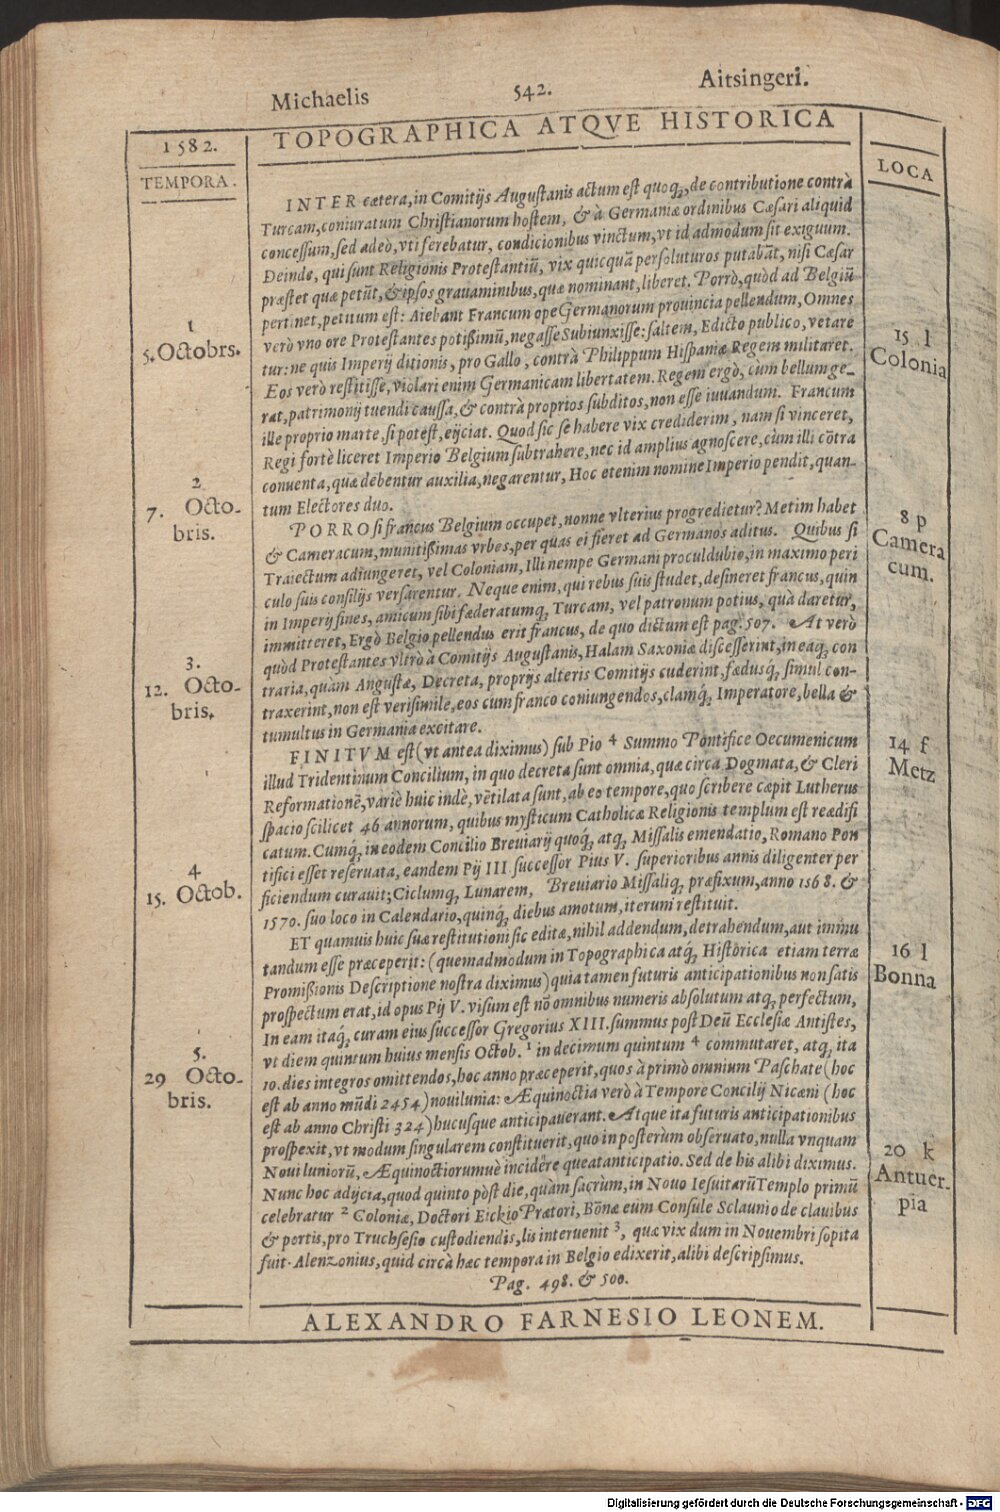 Michaelis 542. Aitsingeri.
TOPOGRAPHICA ATQVE HISTORICA
1582.
TEMPORA.
LOCA
INTER cætera, in Comitijs Augustanis actum est quoq;, de contributione contrà
Turcam, coniuratum Christianorum hostem, & à Germaniæ ordinibus Cæsari aliquid
concessum, sed adeò, vti ferebatur, condicionibus vinctum, vt id admodum sit exiguum.
Deinde, qui sunt Religionis Protestantiũ, vix quicquã persoluturos putabãt, nisi Cæsar
præstet quæ petũt, & ipsos grauaminibus, quæ nominant, liberet. Porrò, quòd ad Belgiũ
pertinet, petitum est: Aiebant Francum ope Germanorum prouincia pellendum, Omnes
verò vno ore Protestantes potißimũ, negasse Subiunxisse: saltem, Edicto publico, vetare
tur: ne quis Imperij ditionis, pro Gallo, contrà Philippum Hispaniæ Regem militaret.
Eos verò restitisse, violari enim Germanicam libertatem. Regem ergò, cùm bellum ge-
rat, patrimonij tuendi caussa, & contrà proprios subditos, non esse iuuandum. Francum
ille proprio marte, si potest, eijciat. Quod sic se habere vix crediderim, nam si vinceret,
Regi fortè liceret Imperio Belgium subtrahere, nec id amplius agnoscere, cùm illi cõtra
conuenta, quæ debentur auxilia, negarentur, Hoc etenim nomine Imperio pendit, quan-
tum Electores duo.
PORRO si francus Belgium occupet, nonne vlterius progredietur? Metim habet
& Cameracum, munitißimas vrbes, per quas ei fieret ad Germanos aditus. Quibus si
Traiectum adiungeret, vel Coloniam, Illi nempe Germani proculdubio, in maximo peri
culo suis consilijs versarentur. Neque enim, qui rebus suis studet, desineret francus, quin
in Imperij fines, amicum sibi fæderatumq;, Turcam, vel patronum potius, quà daretur,
immitteret, Ergò Belgio pellendus erit francus, de quo dictum est pag. 507. At verò
quòd Protestantes vltrò à Comitijs Augustanis, Halam Saxoniæ discesserint, in eáq; con
traria, quàm Angustæ, Decreta, proprijs alteris Comitijs cuderint, fædusq́; simul con-
traxerint, non est verisimile, eos cum franco coniungendos, clamq́; Imperatore, bella &
tumultus in Germania excitare.
FINITVM est (vt antea diximus) sub Pio 4 Summo Pontifice Oecumenicum
illud Tridentinum Concilium, in quo decreta sunt omnia, quæ circa Dogmata, & Cleri
Reformationẽ, variè huic indè, vẽtilata sunt, ab eo tempore, quo scribere cæpit Lutherus
spacio scilicet 46 annorum, quibus mysticum Catholicæ Religionis templum est reædifi
catum. Cumq́; in eodem Concilio Breuiarij quoq́; atq; Missalis emendatio, Romano Pon
tifici esset reseruata, eandem Pij III successor Pius V. superioribus annis diligenter per
ficiendum curauit; Ciclumq́; Lunarem, Breuiario Missaliq; præfixum, anno 1568. &
1570. suo loco in Calendario, quinq́; diebus amotum, iterum restituit.
ET quamuis huic suæ restitutioni sic editæ, nihil addendum, detrahendum, aut immu
tandum esse præceperit: (quemadmodum in Topographica atq́; Historica etiam terræ
Promißionis Descriptione nostra diximus) quia tamen futuris anticipationibus non satis
prospectum erat, id opus Pij V. visum est nõ omnibus numeris absolutum atq; perfectum,
In eam itaq́; curam eius successor Gregorius XIII. summus post Deũ Ecclesiæ Antistes,
vt diem quintum huius mensis Octob. 1 in decimum quintum 4 commutaret, atq; ita
10. dies integros omittendos, hoc anno præceperit, quos à primò omnium Paschate (hoc
est ab anno mũdi 2454) nouilunia: Æquinoctia verò à Tempore Concilij Nicæni (hoc
est ab anno Christi 324) hucusque anticipauerant. Atque ita futuris anticipationibus
prospexit, vt modum singularem constituerit, quo in posterùm obseruato, nulla vnquam
Nouiluniorũ, Æquinoctiorumuè incidere queat anticipatio. Sed de his alibi diximus.
Nunc hoc adijcia, quod quinto pòst die, quàm sacrum, in Nouo Iesuitarũ Templo primũ
celebratur 2 Coloniæ, Doctori Eickio Prætori, Bõnæ eum Consule Sclaunio de clauibus
& portis, pro Truchsesio custodiendis, lis interuenit 3, quæ vix dum in Nouembri sopita
fuit. Alenzonius, quid circà hæc tempora in Belgio edixerit, alibi descripsimus.
Pag. 498. & 500.
1
5. Octobrs.
2
7. Octo-
bris.
3.
12. Octo-
bris.
4
15. Octob.
5.
29 Octo-
bris.
15 l
Colonia
8 p
Camera
cum.
14 f
Metz
16 l
Bonna
20 k
Antuer-
pia
ALEXANDRO FARNESIO LEONEM.
Digitalisierung gefördert durch die Deutsche Forschungsgemeinschaft - DFG